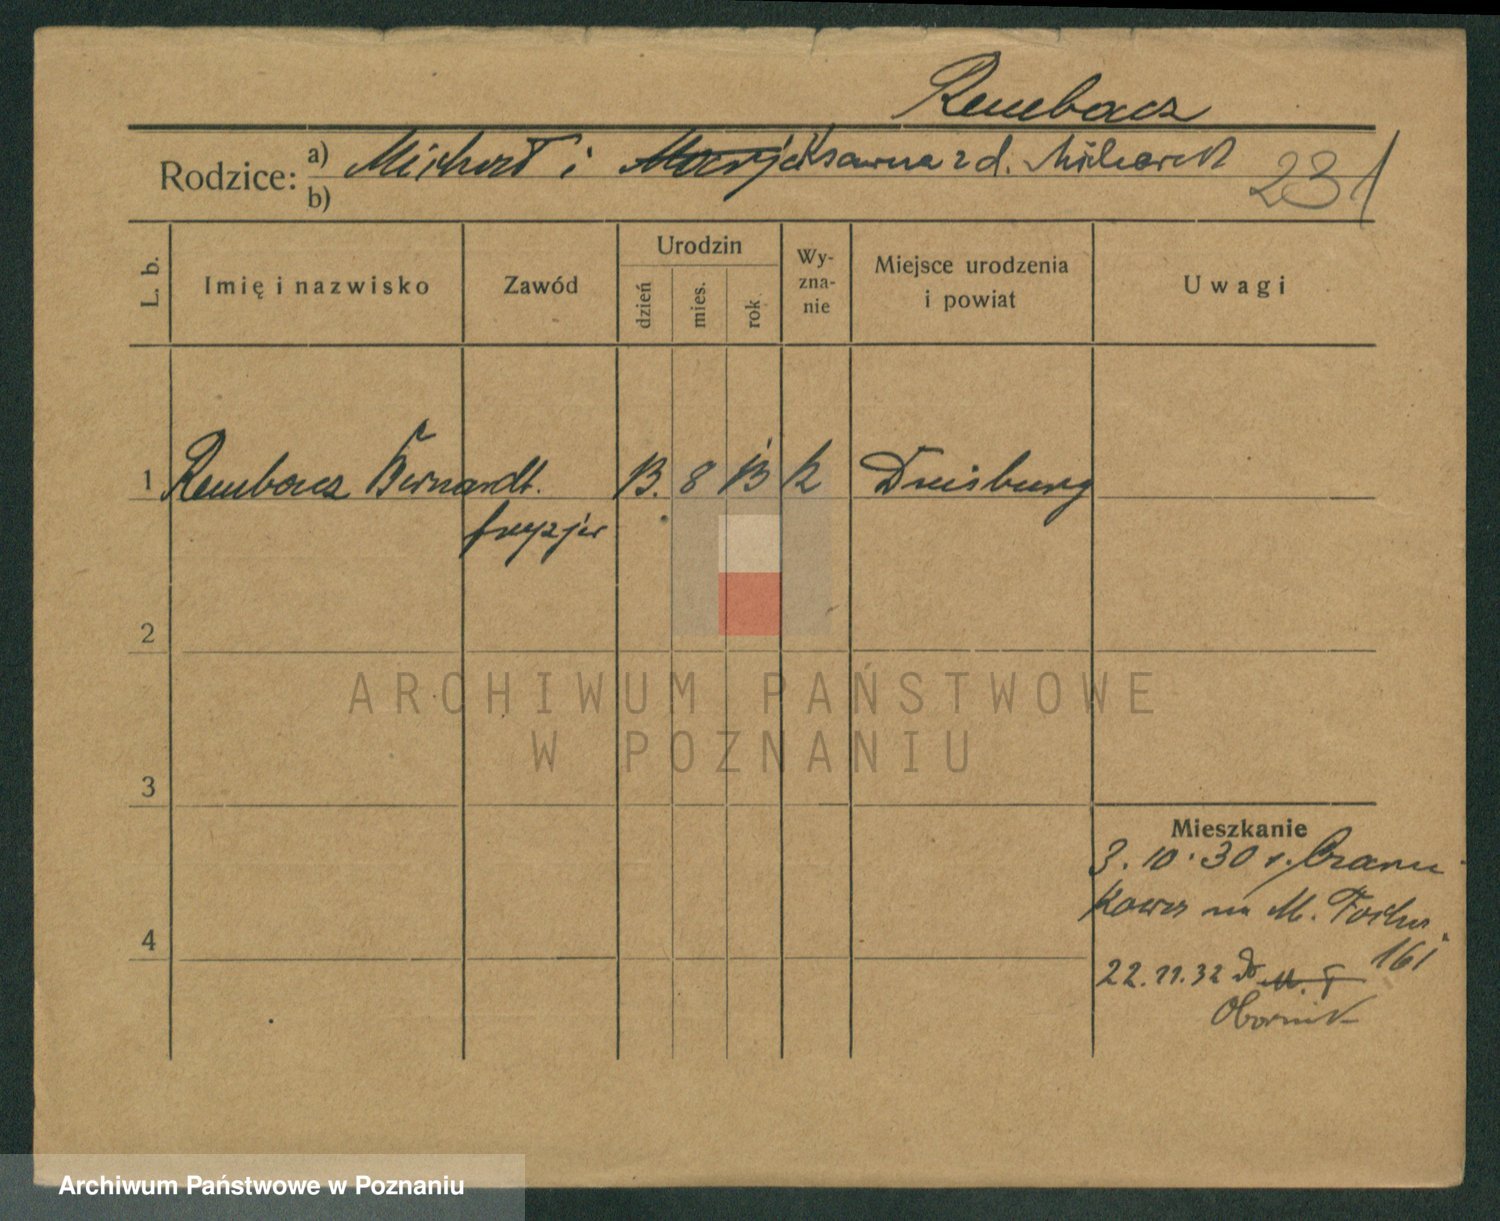 Rembacz
Rodzice: a) Michał i Marja Ksawera z d.
b)
231
L. b.
Imię i nazwisko
Zawód
Urodzin
dzień
mies.
rok
Wy-
zna-
nie
Miejsce urodzenia
i powiat
Uwagi
1 Rembacz Bernardt. 13. 8 13 k Duisburg
fryzjer
2
ARCHIWUM PAŃSTWOWE
W POZNANIU
3
Mieszkanie
3.10.30 z Czarn
kowa na M. Focha
161
4
22.11.32 do M. F
Obornik
Archiwum Państwowe w Poznaniu